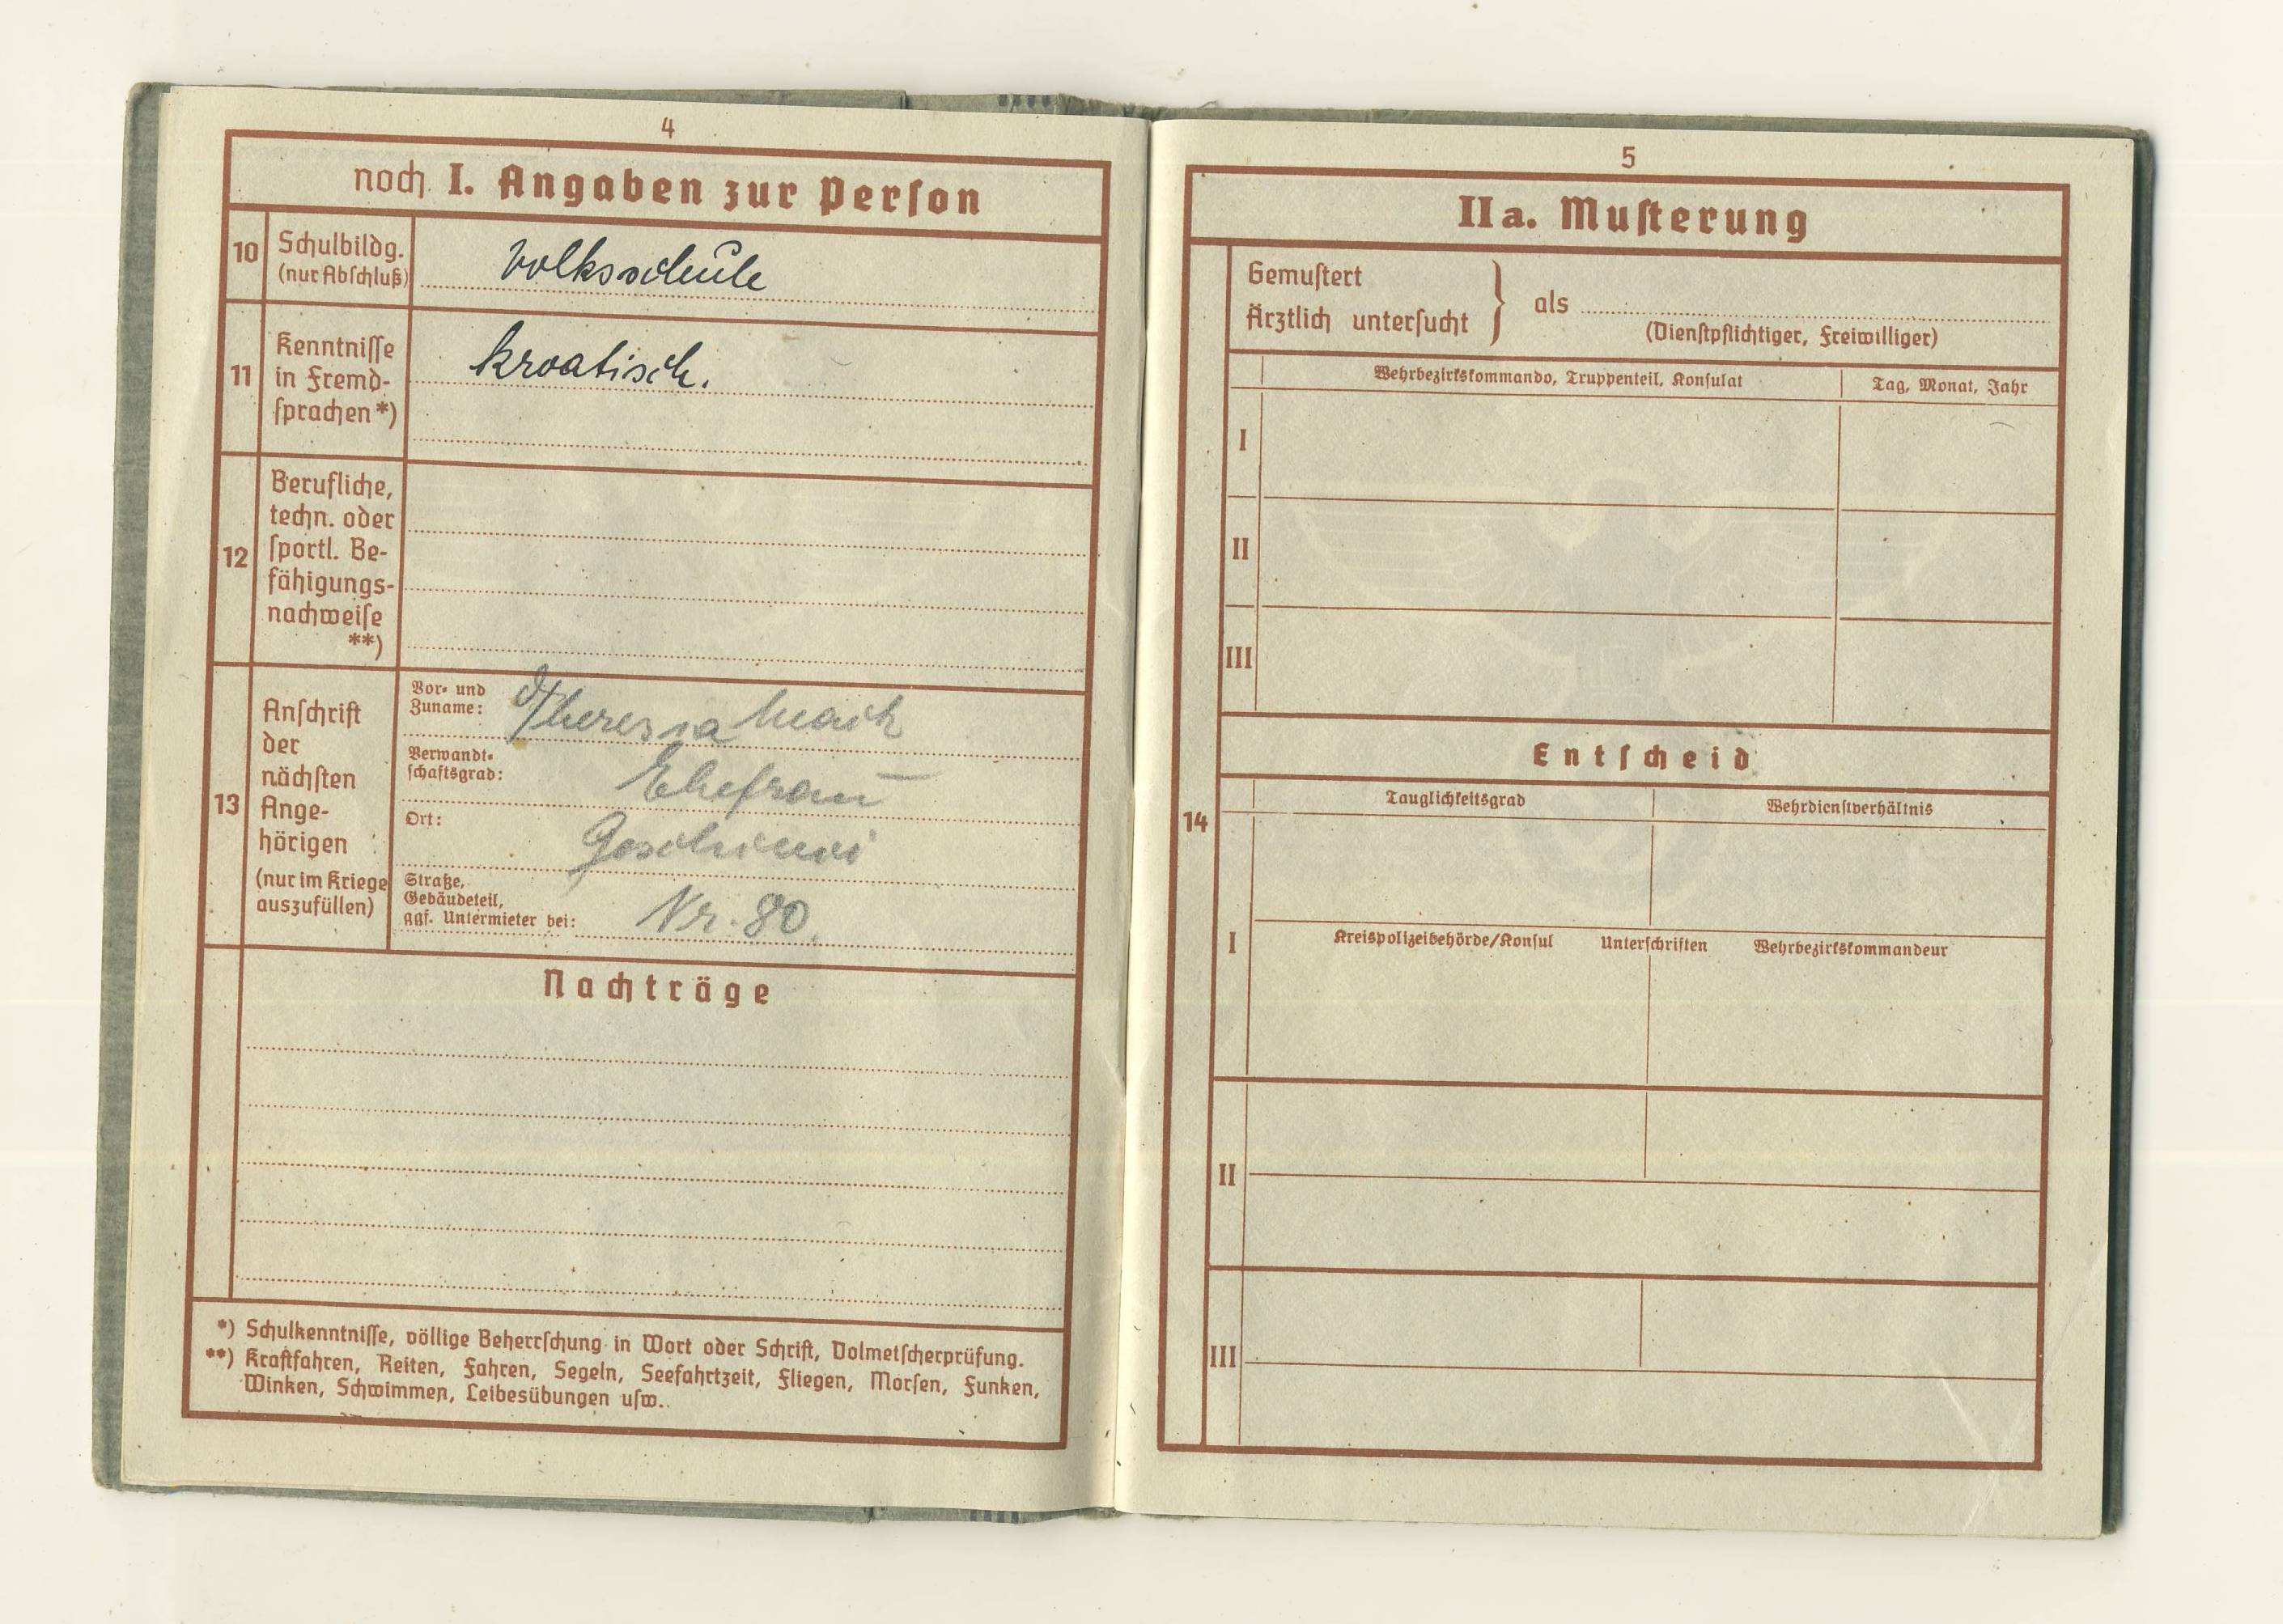 4
noch I. Angaben zur Perſon
10 Schulbildg. (nur Abſchluß)
Volksschule
11 Kenntniſſe in Fremd-ſprachen *)
kroatisch.
12 Berufliche, techn. oder ſportl. Be-fähigungs-nachweiſe **)
13 Anſchrift der nächſten Ange-hörigen (nur im Kriege auszufüllen)
Vor- und Zuname: Theresia
Verwandt-ſchaftsgrad: Ehefrau
Ort:
Straße, Gebäudeteil, ggf. Untermieter bei: Nr. 80.
Nachträge
*) Schulkenntniſſe, völlige Beherrſchung in Wort oder Schrift, Dolmetſcherprüfung.
**) Kraftfahren, Reiten, Fahren, Segeln, Seefahrtzeit, Fliegen, Morſen, Funken,
Winken, Schwimmen, Leibesübungen uſw.
5
II a. Muſterung
Gemuſtert
Ärztlich unterſucht } als
(Dienſtpflichtiger, Freiwilliger)
Wehrbezirkskommando, Truppenteil, Konſulat
Tag, Monat, Jahr
I
II
III
Entſcheid
14
Tauglichkeitsgrad
Wehrdienſtverhältnis
I
Kreispolizeibehörde/Konſul Unterſchriften Wehrbezirkskommandeur
II
III